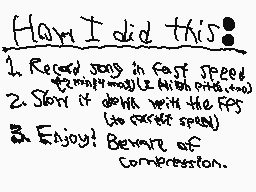 How I did this:
1. Record song in fast speed
(2 min/4 max) (& High Pitch, too)
2. Slow it down with the FPS
(to correct speed)
3. Enjoy! Beware of
compression.